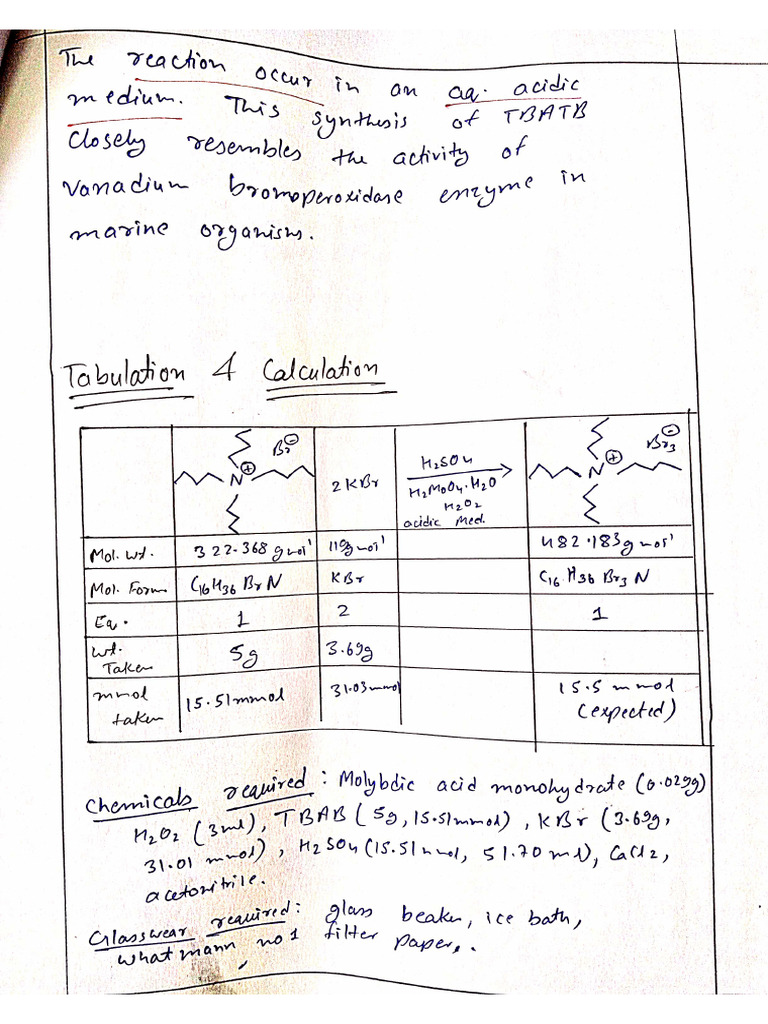 The reaction occur in an aq. acidic
medium. This synthesis of TBATB
closely resembles the activity of
vanadium bromoperoxidase enzyme in
marine organism.
Tabulation & Calculation
Br⊖ N⊕
2KBr
H2SO4
H2MoO4·H2O
H2O2
acidic Med.
Br3⊖ N⊕
Mol. wt. 322.368 g mol-1 119 g mol-1 482.183 g mol-1
Mol. Form C16H36BrN KBr C16H36Br3N
Eq. 1 2 1
wt. Taken 5g 3.69g
mmol taken 15.51mmol 31.03mmol 15.5 mmol (expected)
Chemicals required: Molybdic acid monohydrate (0.029g)
H2O2 (3ml), TBAB (5g, 15.51mmol), KBr (3.69g,
31.01 mmol), H2SO4 (15.51 mmol, 51.70 ml), CaCl2,
acetonitrile.
Glasswear required: glass beaker, ice bath,
whatmann no 1 filter paper,.